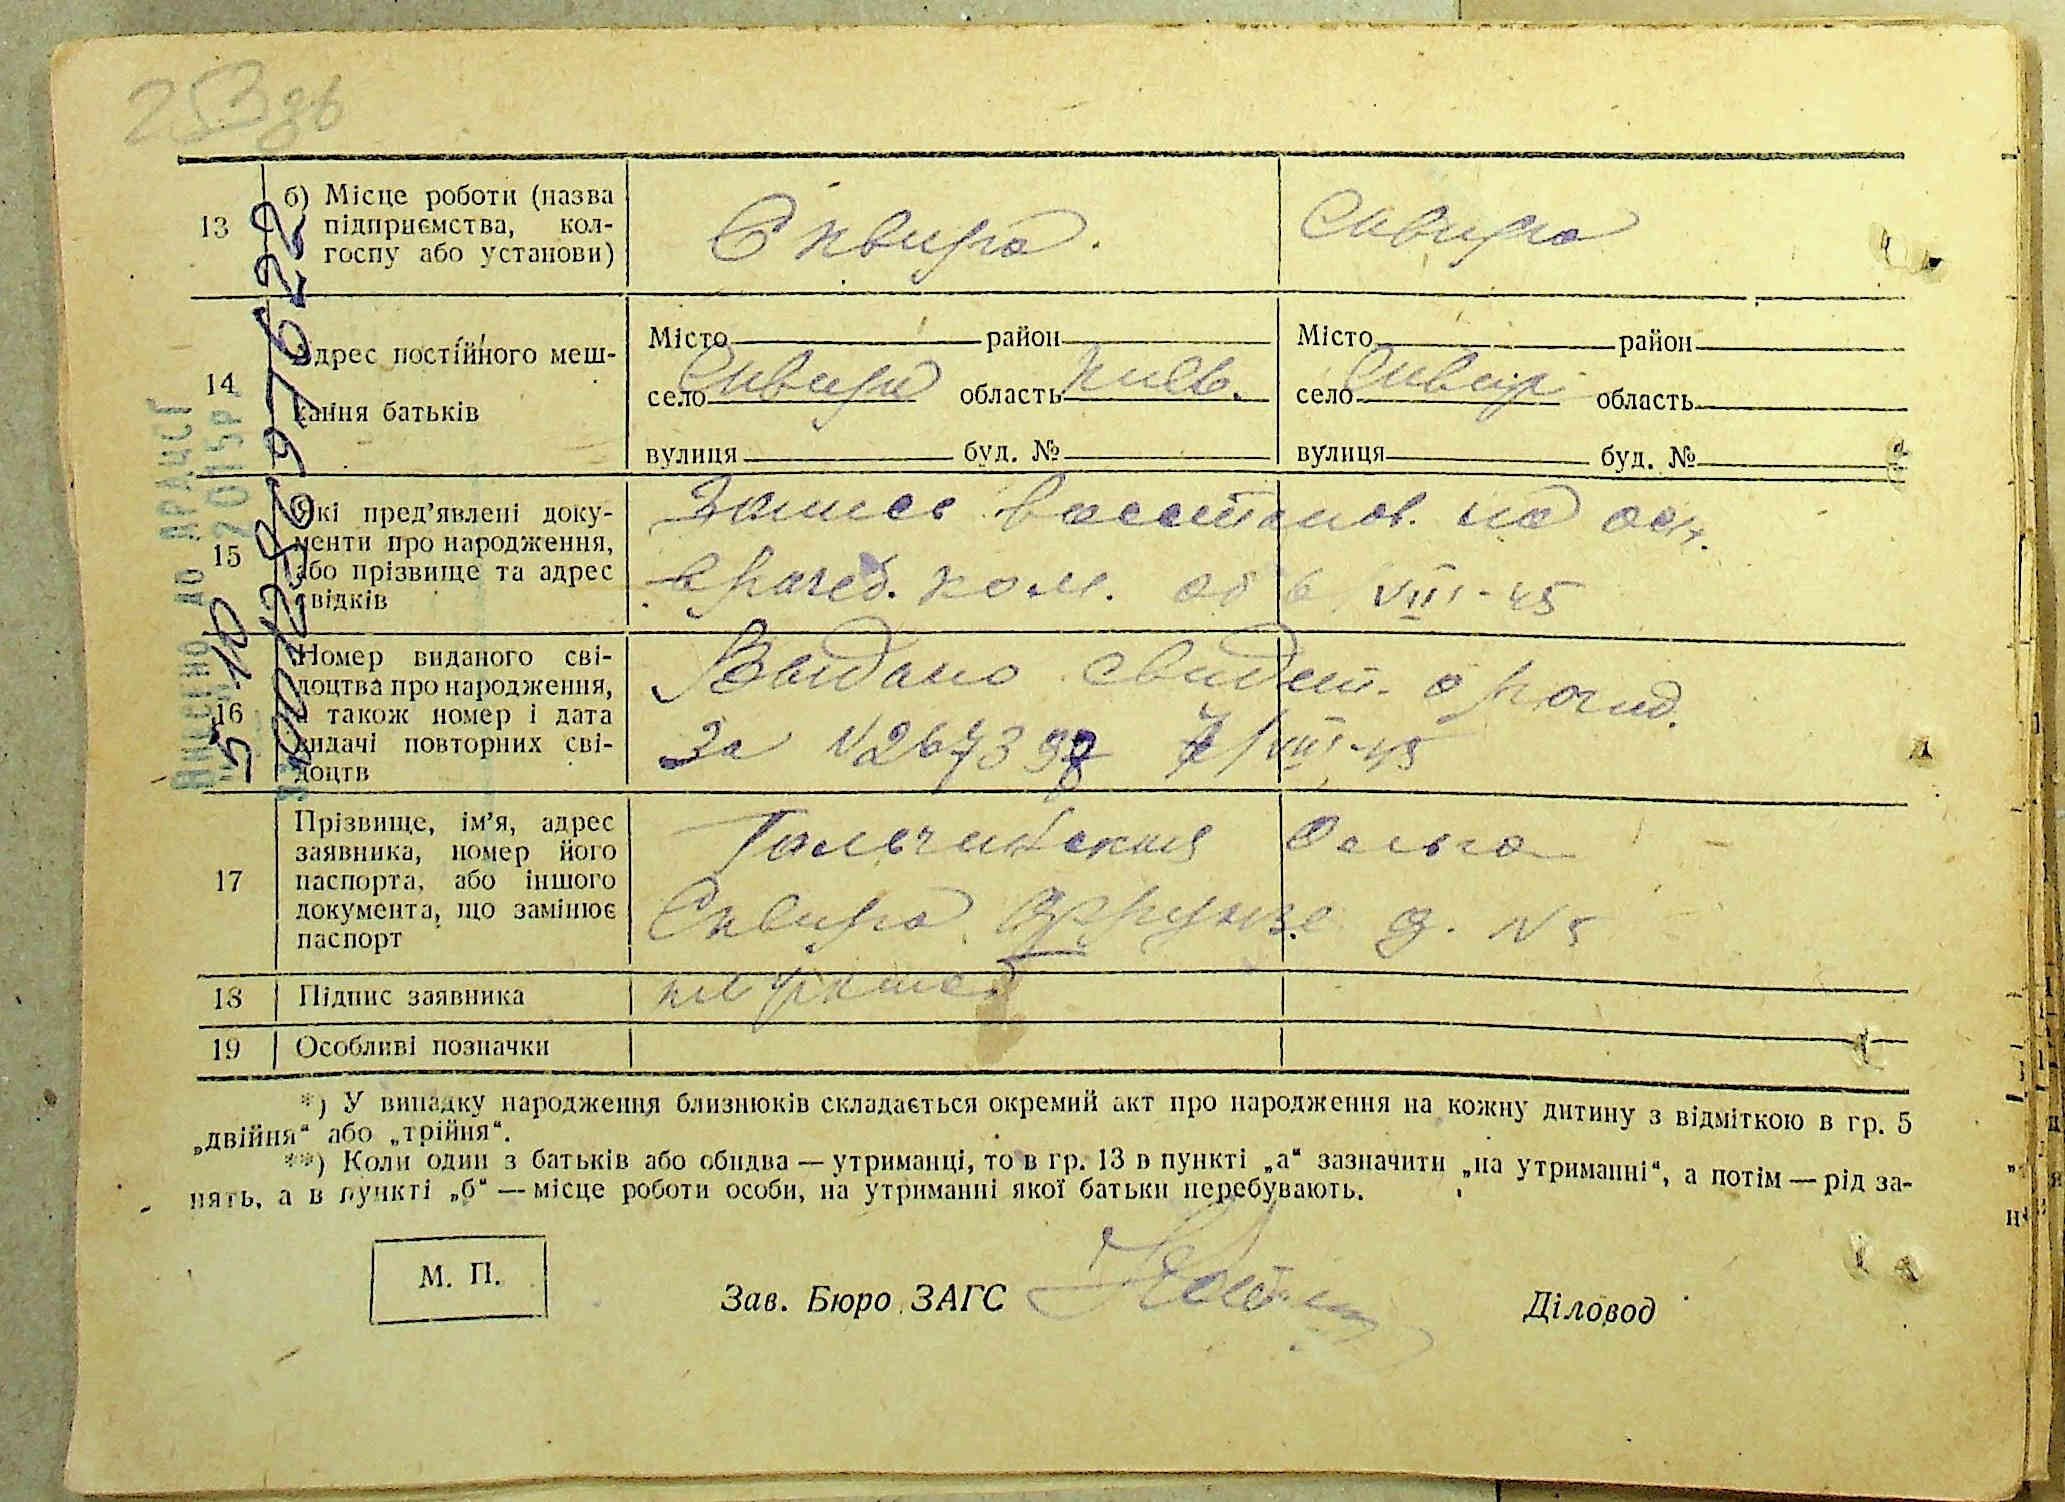 253 зв
13
б) Місце роботи (назва
підприємства, кол-
госпу або установи)
Сквира.
Сквира
14
Адрес постійного меш-
кання батьків
Місто район
село Сквира область Киев.
вулиця буд. №
Місто район
село Сквир область
вулиця буд. №
15
Які пред’явлені доку-
менти про народження,
або прізвище та адрес
свідків
Запись восстанов. на осн.
врачеб. ком. от 6 VIII-45
16
Номер виданого сві-
доцтва про народження,
а також номер і дата
видачі повторних сві-
доцтв
Выдано свидет. о рожд.
За № 7/VIII-45
17
Прізвище, ім’я, адрес
заявника, номер його
паспорта, або іншого
документа, що замінює
паспорт
Гальчинская Ольга
Сквира Фрунзе д. № 5
18
Підпис заявника
19
Особливі позначки
*) У випадку народження близнюків складається окремий акт про народження на кожну дитину з відміткою в гр. 5
„двійня“ або „трійня“.
**) Коли один з батьків або обидва — утриманці, то в гр. 13 в пункті „а“ зазначити „на утриманні“, а потім — рід за-
нять, а в пункті „б“ — місце роботи особи, на утриманні якої батьки перебувають.
М. П.
Зав. Бюро ЗАГС
Діловод
Внесено до ДРАЦСГ
2015р.
5.10